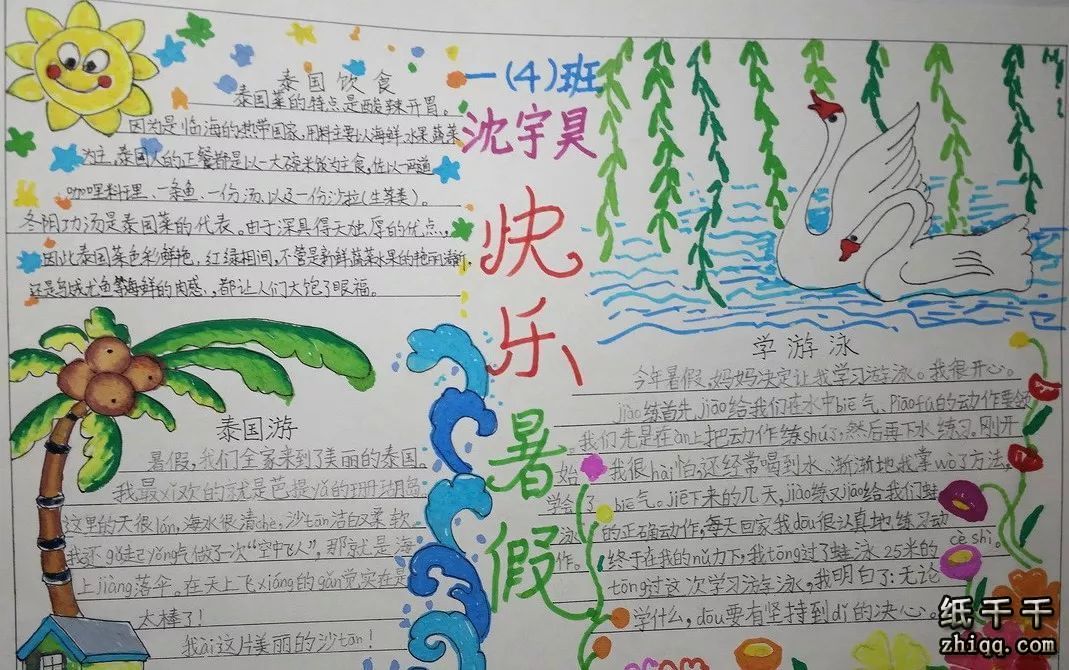 泰国饮食
泰国菜的特点是酸辣开胃。
因为是临海的热带国家,用料主要以海鲜水果蔬菜
为主,泰国人的正餐都是以一大碗米饭为主食,佐以一两道
咖哩料理、一条鱼、一份汤、以及一份沙拉(生菜类)。
冬阴功汤是泰国菜的代表。由于深具得天独厚的优点,
因此泰国菜色彩鲜艳,红绿相间,不管是新鲜蔬菜水果的艳丽清新,
还是乌贼尤鱼等海鲜的肉感,都让人们大饱了眼福。
泰国游
暑假,我们全家来到了美丽的泰国。
我最xǐ欢的就是芭提yǎ的珊瑚岛
这里的天很lán,海水很清chè,沙tān洁白又柔软。
我还gǔ起yǒng气做了一次“空中飞人”,那就是海
上jiàng落伞。在天上飞xiáng的gǎn觉实在是
太棒了!
我ài这片美丽的沙tān!
一(4)班
沈宇昊
快乐暑假
学游泳
今年暑假,妈妈决定让我学习游泳。我很开心。
jiào练首先jiāo给我们在水中biē气、piāo fú的动作要领
我们先是在àn上把动作练shú了,然后再下水练习。刚开
始,我很hài怕,还经常喝到水。渐渐地我掌wò了方法,
学会了biē气。jiē下来的几天,jiào练又jiāo给我们蛙
泳的正确动作,每天回家我dōu很认真地练习动
作。终于在我的nǔ力下,我tōng过了蛙泳25米的cè shì。
tōng过这次学习游泳,我明白了:无论
学什么,dōu要有坚持到dǐ的决心。
纸千千
zhiqq.com